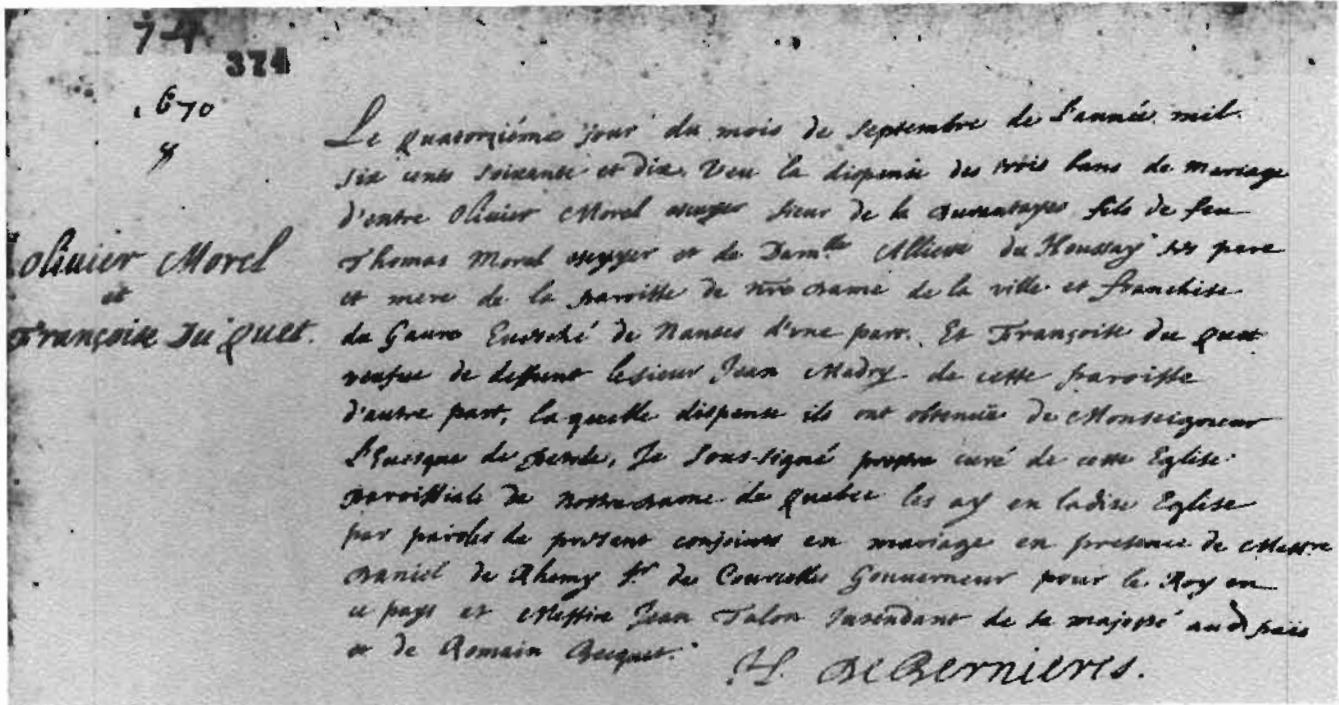 74
374
1670
Olivier Morel
et
Françoise Du Quet.
Le quatorziéme jour du mois de septembre de l'année mil
six cents soixante et dix. Veu la dispense des trois bans de mariage
d'entre Olivier Morel escuyer sieur de la Durantayes fils de feu
Thomas Morel escuyer et de Dam.lle Alliette du Houssay ses pere
et mere de la paroisse de Nre Dame de la ville et franchise
du Gaure Evesché de Nantes d'vne part. Et Françoise du Quet
veufue de deffunt le sieur Jean Madry de cette paroisse
d'autre part, laquelle dispense ils ont obtenuë de Monseigneur
l'Euesque de Petrée, Je sous-signé prestre curé de cette Eglise
Paroissiale de Nostre Dame de Quebec les ay en ladite Eglise
par paroles de present conjoints en mariage en presence de Messire
Daniel de Rhemy Sr de Courcelles Gouuerneur pour le Roy en
ce pays et Messire Jean Talon Intendant de sa majesté aud. païs
et de Romain Becquet.
H. DeBernieres.